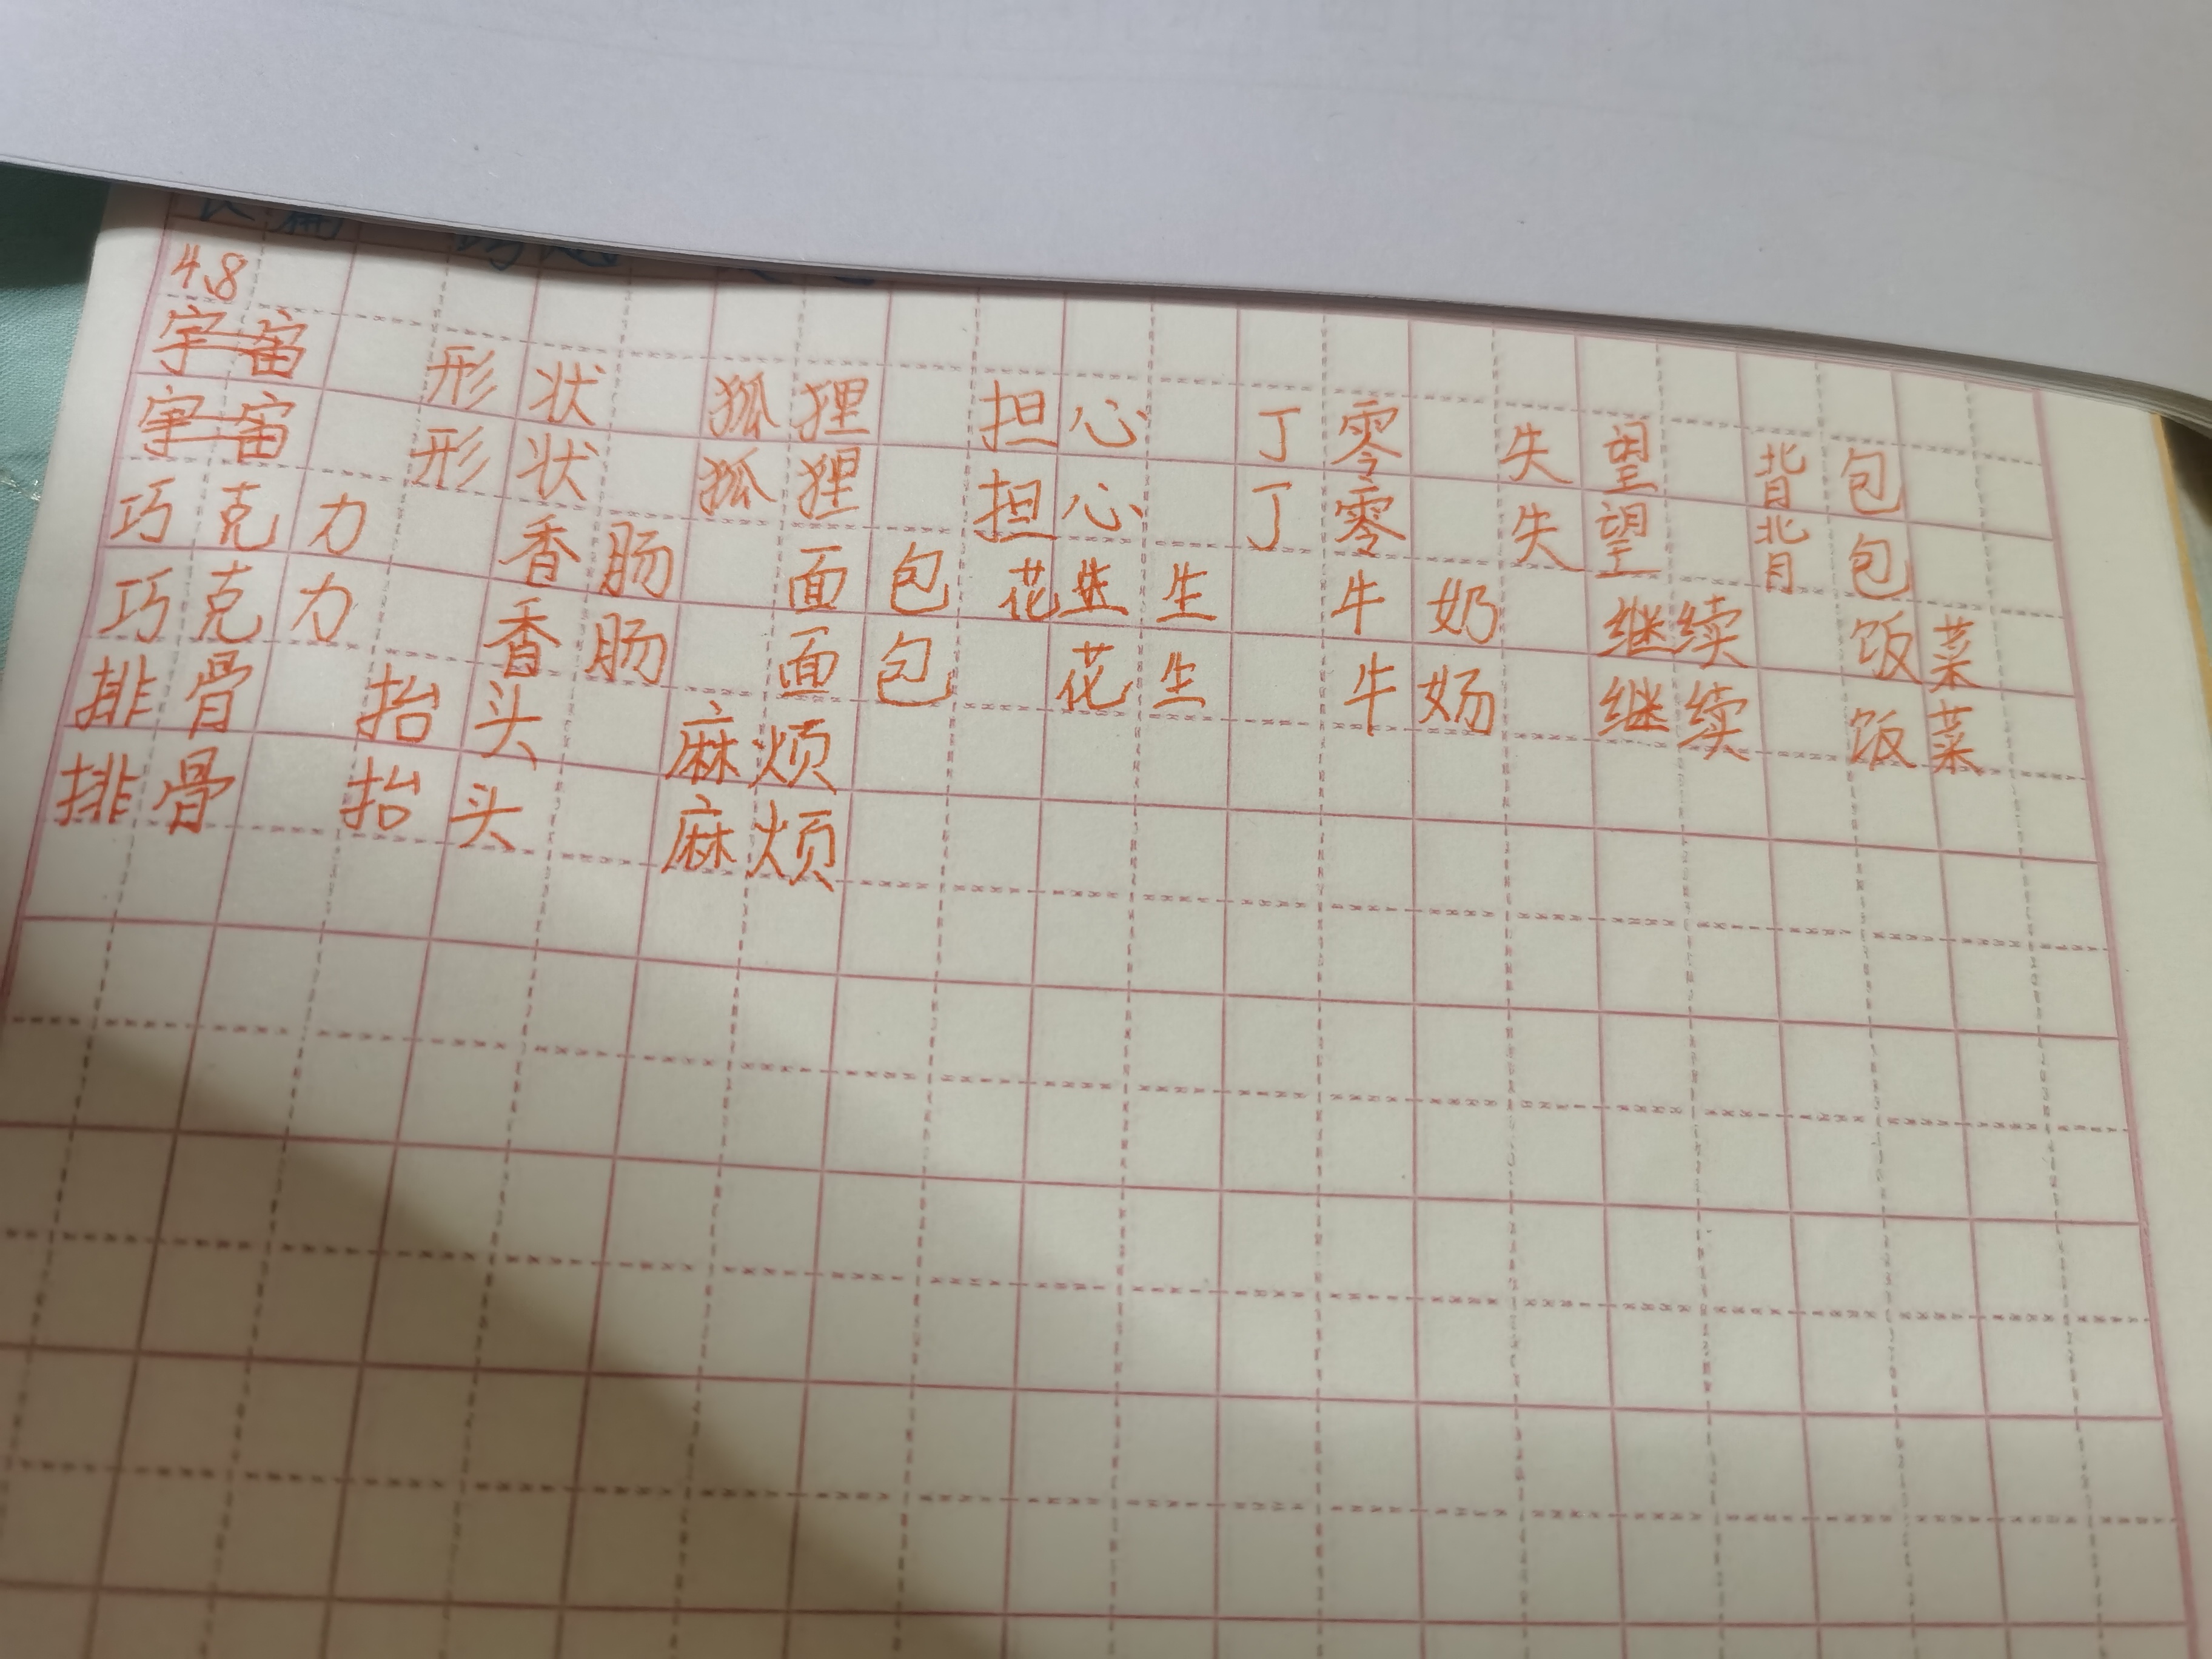 4.8
宇宙 形状 狐狸 担心 丁零 失望 背包
宇宙 形状 狐狸 担心 丁零 失望 背包
巧克力 香肠 面包 花生 牛奶 继续 饭菜
巧克力 香肠 面包 花生 牛奶 继续 饭菜
排骨 抬头 麻烦
排骨 抬头 麻烦